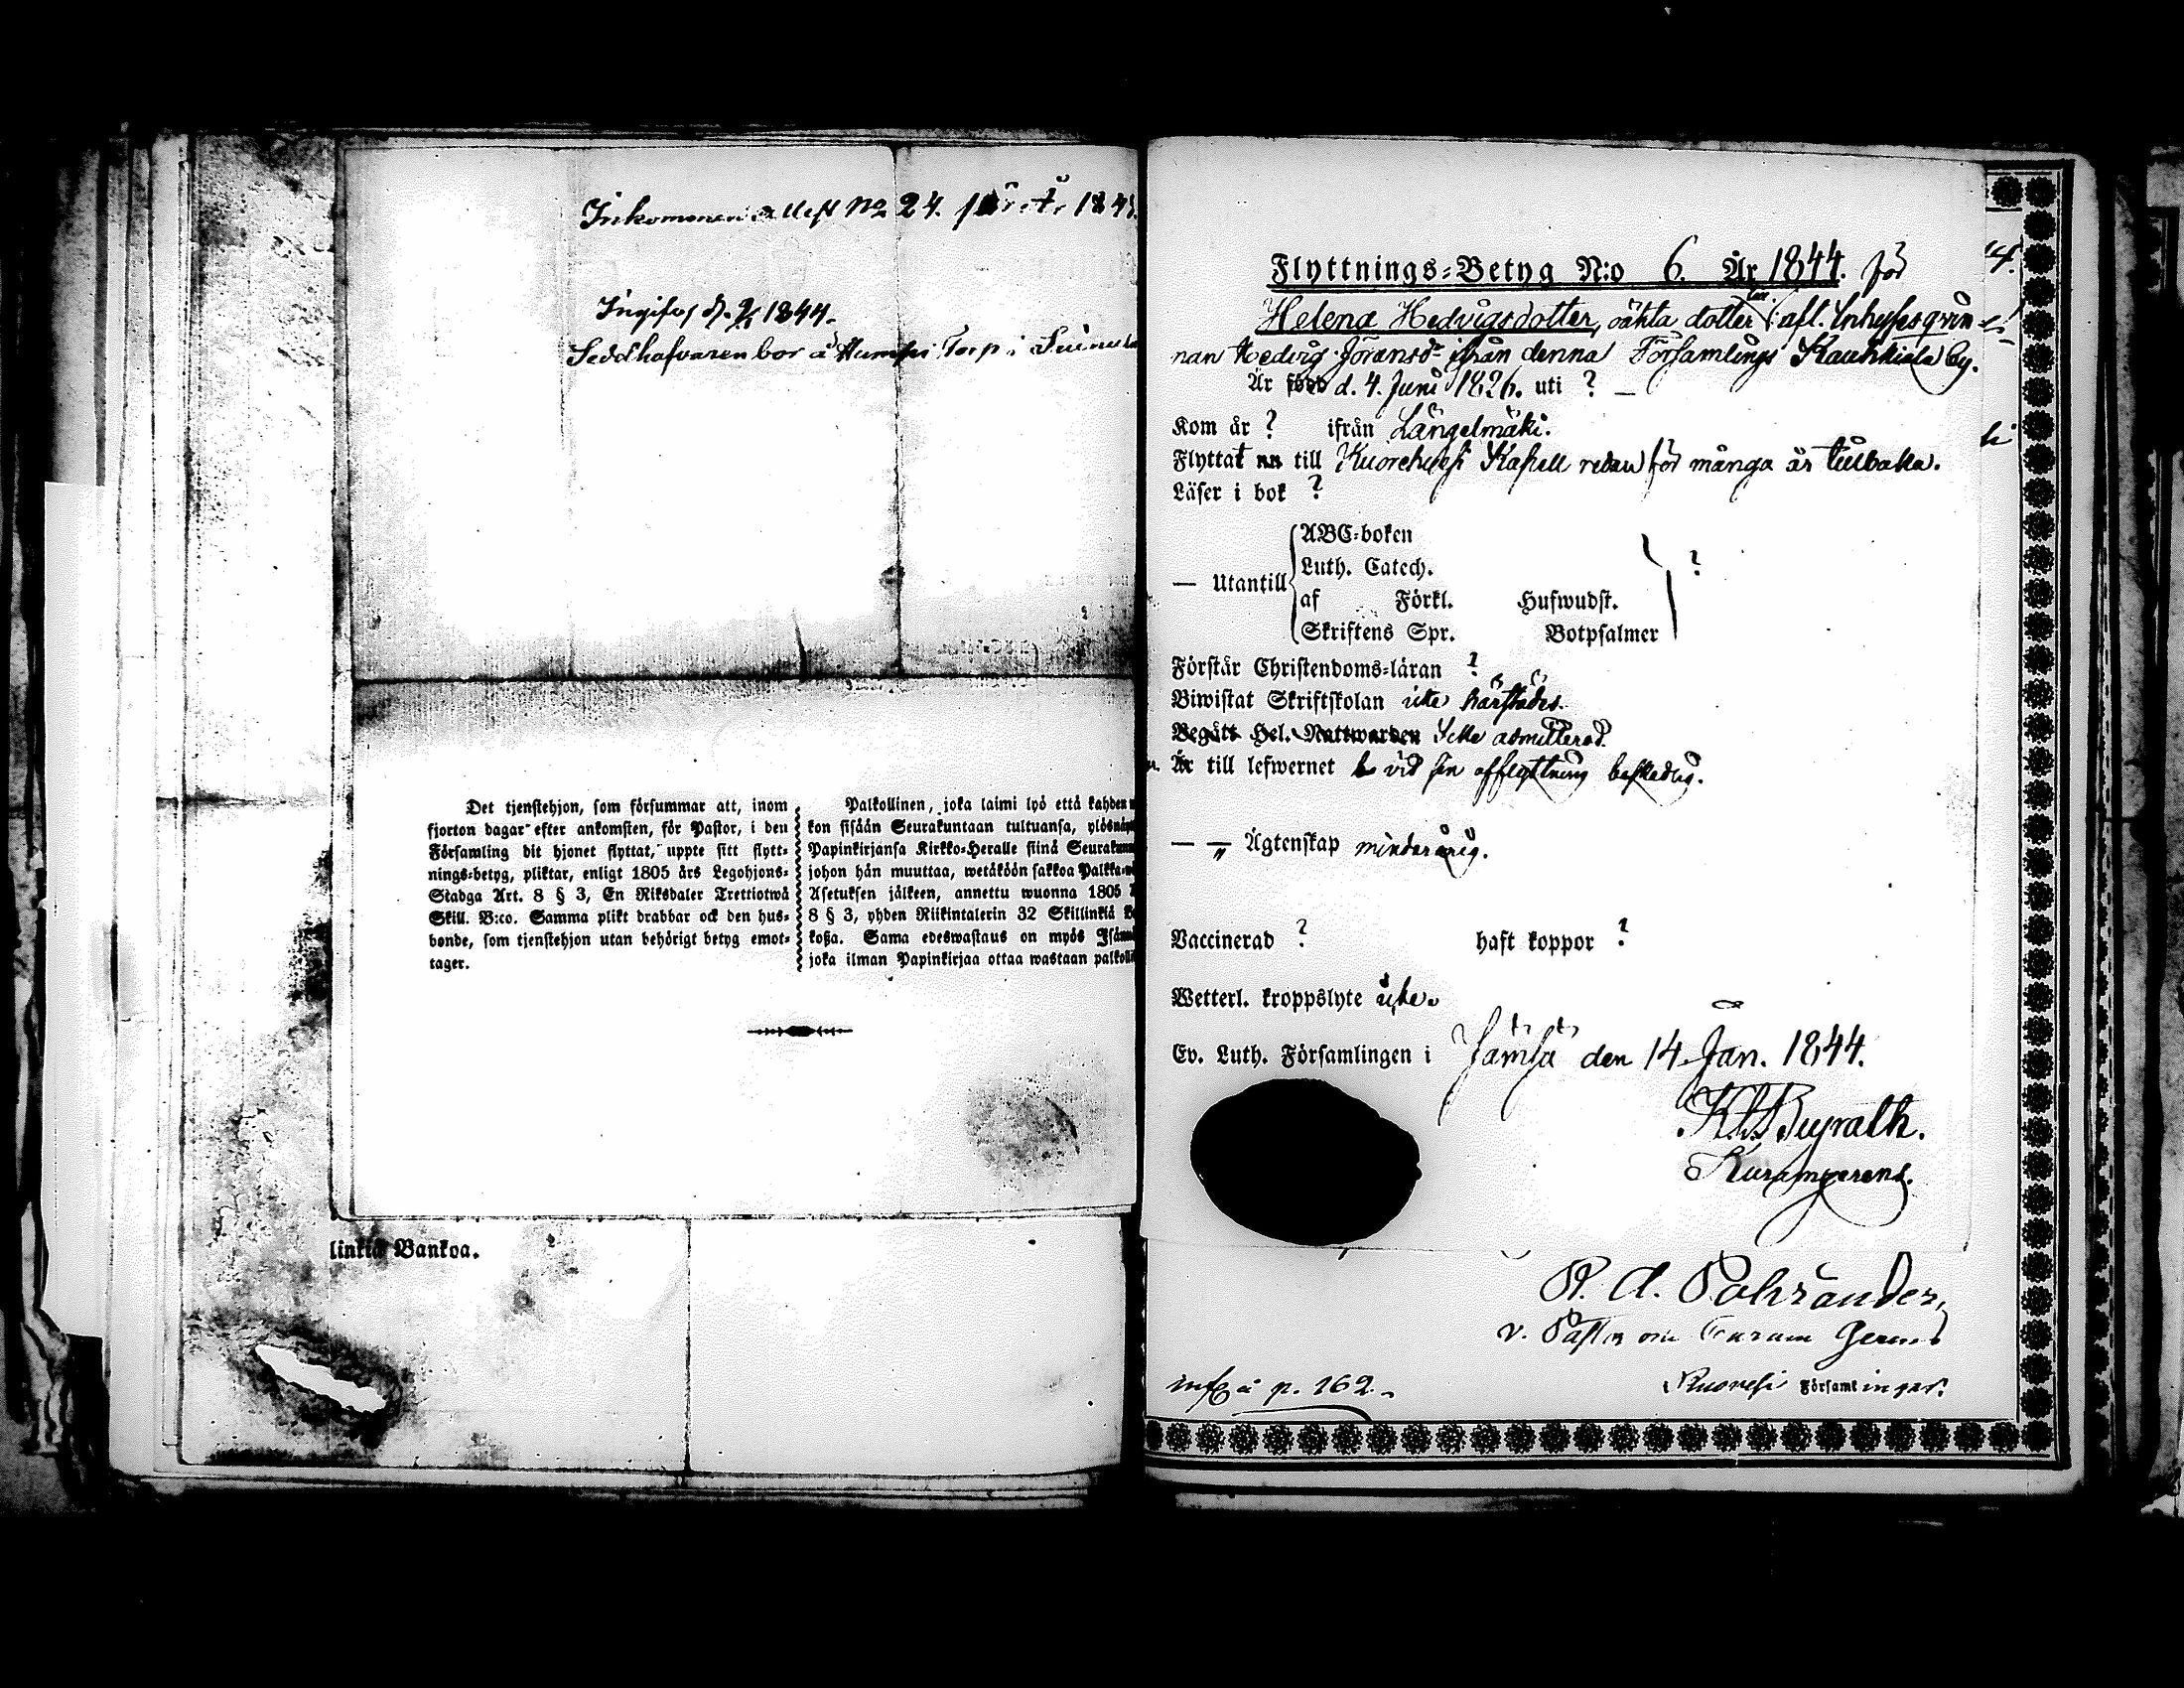 Inkommen attest No 24. för År 184
Ingifvej d. 9/6 1844.
Seddhafvaren bor å Humpi Torp i
Det tjenstehjon, som försummar att, inom
fjorton dagar efter ankomsten, för Pastor, i den
Församling dit hjonet flyttat, uppte sitt flytt-
nings-betyg, pliktar, enligt 1805 års Legohjons-
Stadga Art. 8 § 3, En Riksdaler Trettiotwå
Skill. B:co. Samma plikt drabbar ock den hus-
bonde, som tjenstehjon utan behörigt betyg emot-
tager.
Palkollinen, joka laimi lyö että kahden
kon sisään Seurakuntaan tultuansa,
Papinkirjansa Kirkko-Heralle siinä
johon hän muuttaa, wetäköön sakkoa
Asetuksen jälkeen, annettu wuonna 1805
8 § 3, yhden Riikintalerin 32 Skillinkiä
koßa. Sama edeswastaus on myös
joka ilman Papinkirjaa ottaa wastaan
linkiä Bankoa.
Flyttnings-Betyg N:o 6. År 1844. för
Helena Hedvigsdotter, oäkta dotter af afl. Inhysesqvin-
nan Hedvig Joransdr ifrån denna Församlings Kauhkiala by.
Är född d. 4. Juni 1826. uti ? —
Kom år ? ifrån Längelmäki.
Flyttat nu till Kuorehvesi Kapell redan för många år tillbaka.
Läser i bok ?
— Utantill
ABC-boken
Luth. Catech.
af Förkl. Hufwudst.
Skriftens Spr. Botpsalmer
?
Förstår Christendoms-läran ?
Biwistat Skriftskolan icke härstädes.
Begått Hel. Nattwarden Icke admitterad.
Är till lefwernet vid sin afflyttning beskedlig.
— „ Ägtenskap minderårig.
Vaccinerad ? haft koppor ?
Wetterl. kroppslyte icke.
Ev. Luth. Församlingen i Jämsä den 14 Jan. 1844.
Kuramgerens.
v. Pastor
inf å p. 162.
Kuorevesi Församlingar.